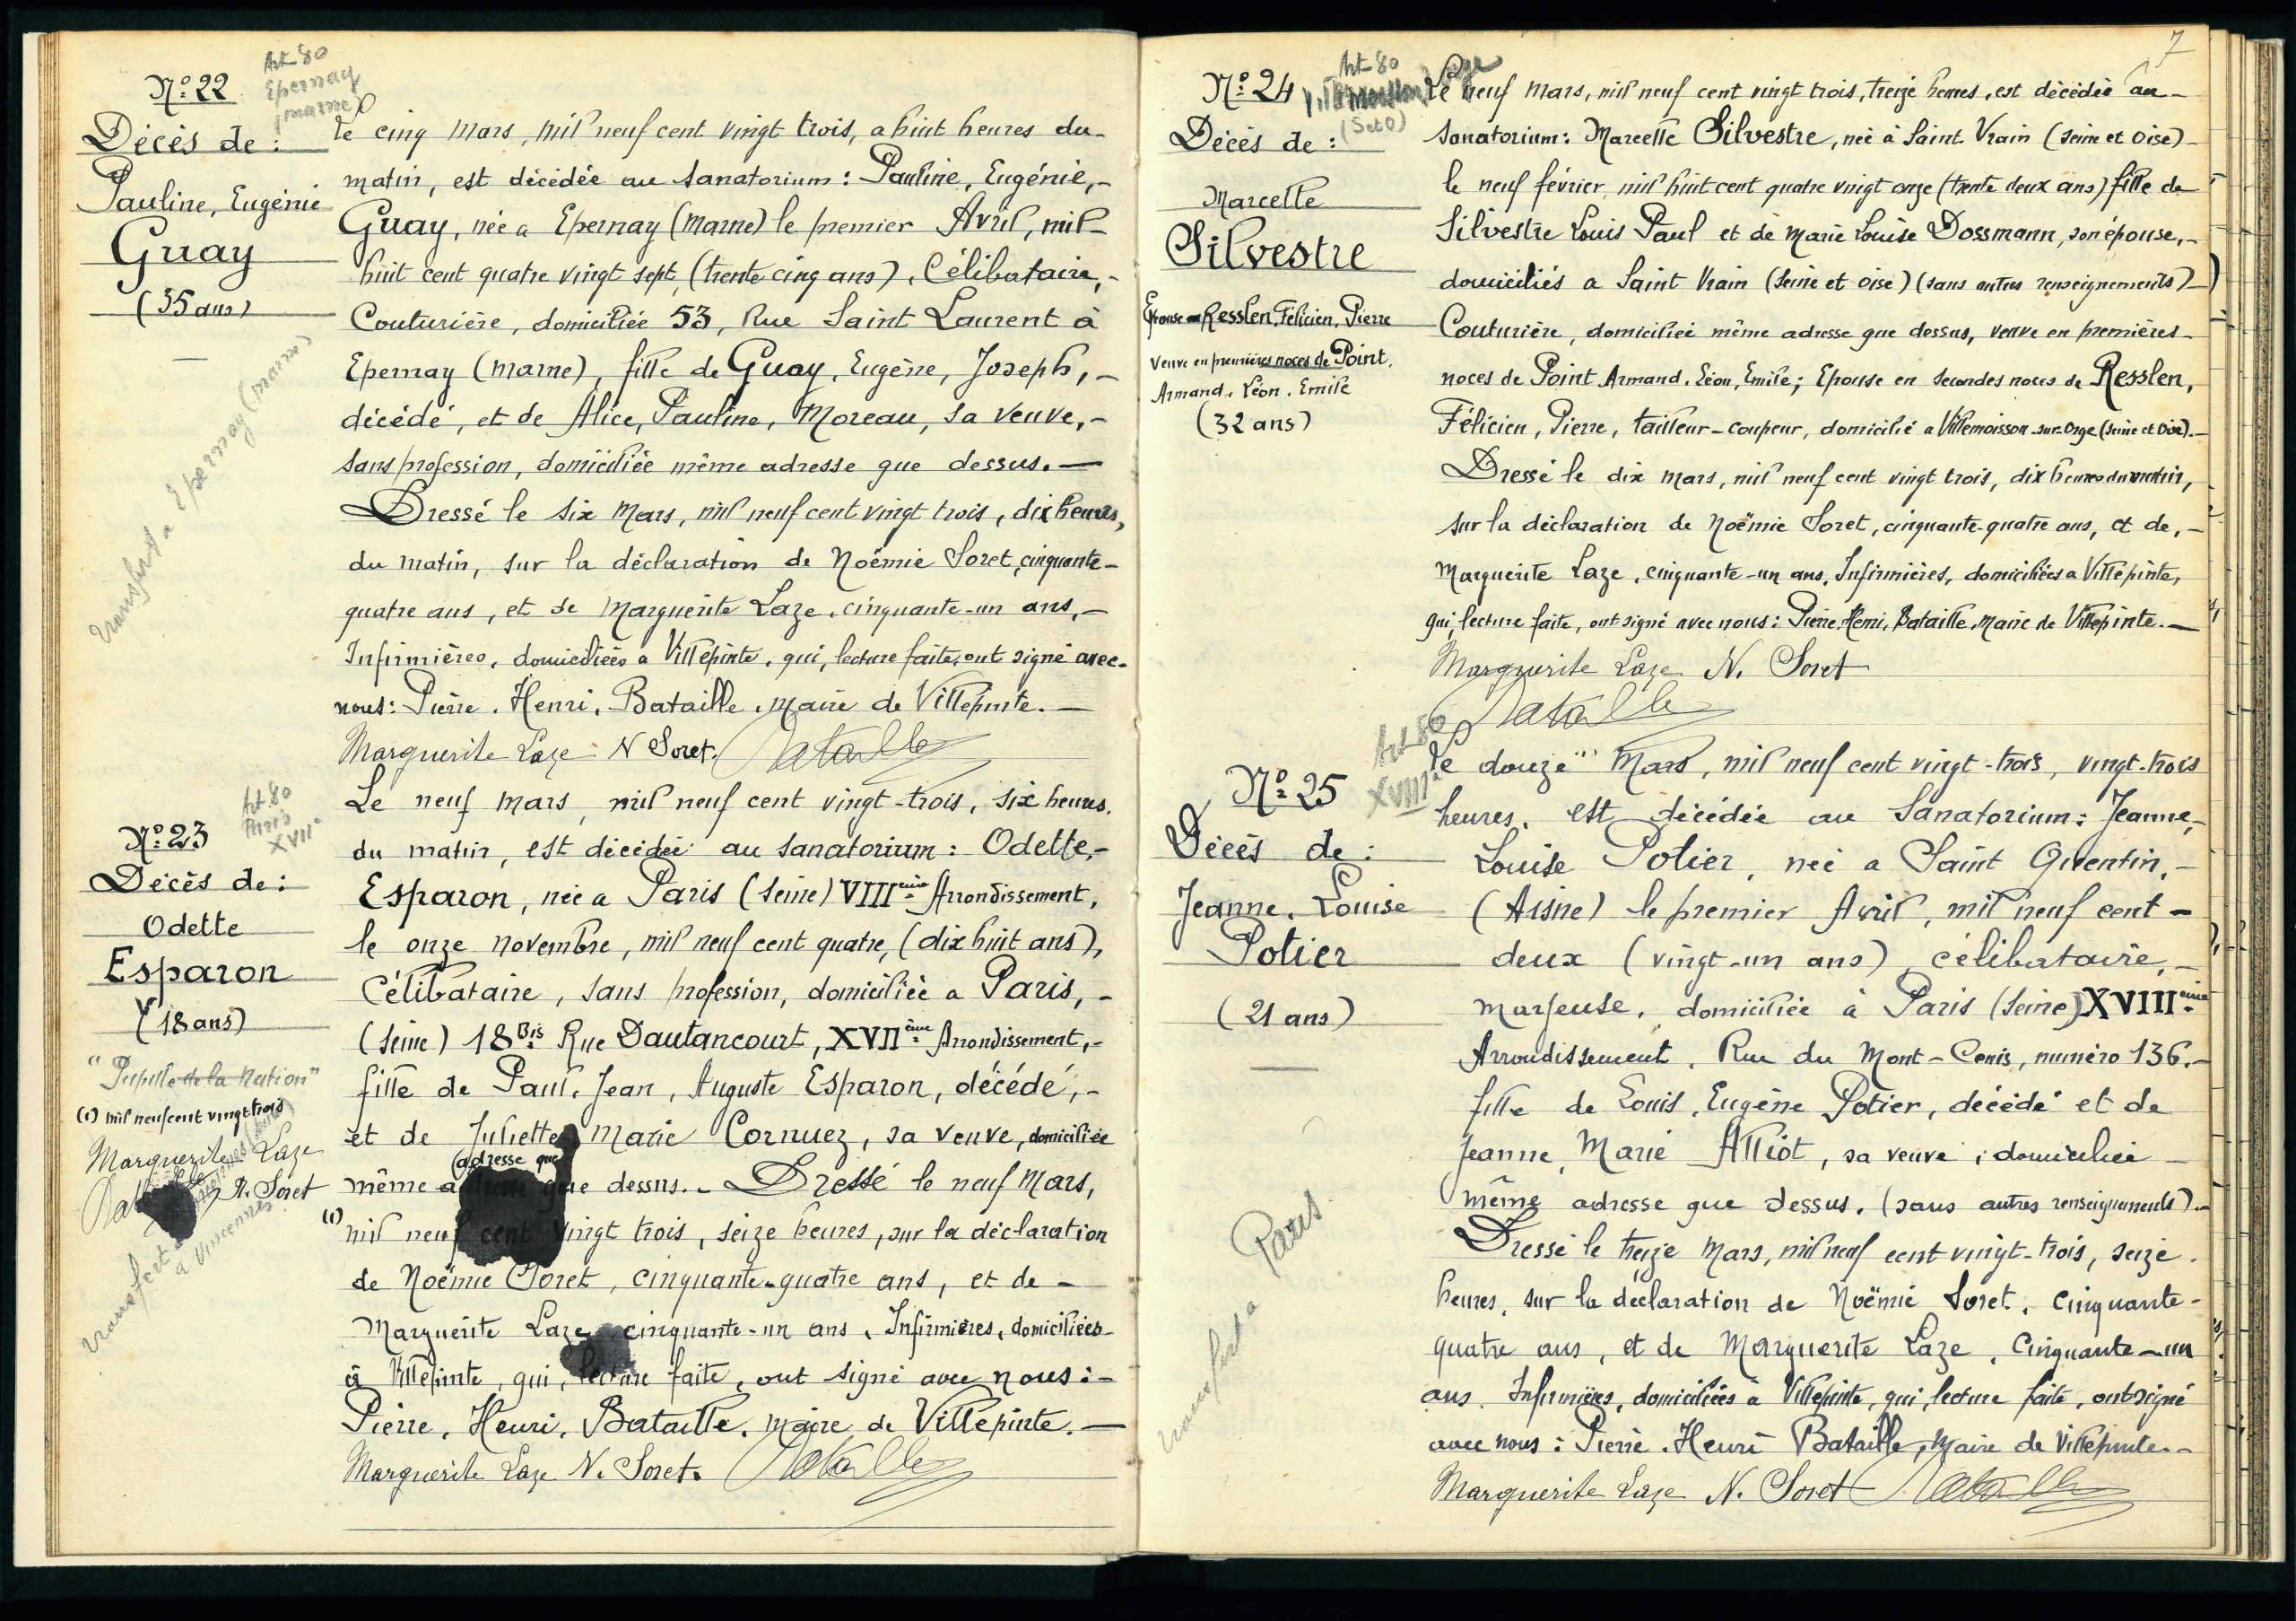 N° 22
Art 80
Epernay
(marne)
Décès de :
Pauline, Eugénie
Guay
(35 ans)
transfert a Epernay (marne)
Le cinq Mars, mil neuf cent vingt trois, a huit heures du-
matin, est décédée au sanatorium : Pauline, Eugénie,-
Guay, née a Epernay (Marne) le premier Avril, mil-
huit cent quatre vingt sept, (trente cinq ans), Célibataire,-
Couturière, domiciliée 53, Rue Saint Laurent à
Epernay (Marne), fille de Guay, Eugène, Joseph,-
décédé, et de Alice, Pauline, Moreau, sa veuve,-
sans profession, domiciliée même adresse que dessus.-
Dressé le six Mars, mil neuf cent vingt trois, dix heures,
du matin, sur la déclaration de Noëmie Soret, cinquante-
quatre ans, et de Marguerite Laze, cinquante-un ans,-
Infirmières, domiciliées a Villepinte, qui, lecture faite, ont signé avec-
nous : Pierre, Henri, Bataille, Maire de Villepinte.-
Marguerite Laze N Soret. Bataille
N° 23
Art 80
Paris
XVIIe
Décès de :
Odette
Esparon
(18 ans)
"Pupille de la Nation"
(1) mil neuf cent vingt trois
Marguerite Laze
Bataille N. Soret
transfert
a Vincennes
Le neuf Mars, mil neuf cent vingt-trois, six heures.
du matin, est décédée au sanatorium : Odette,-
Esparon, née a Paris (Seine) VIIIème Arrondissement,
le onze novembre, mil neuf cent quatre, (dix huit ans),
Célibataire, sans profession, domiciliée a Paris,-
(Seine) 18 Bis Rue Dautancourt, XVIIème Arrondissement,-
fille de Paul, Jean, Auguste Esparon, décédé,-
et de Juliette Marie Cornuez, sa veuve, domiciliée
(adresse que
même adresse que dessus.- Dressé le neuf Mars,
(1) mil neuf cent vingt trois, seize heures, sur la déclaration
de Noëmie Soret, cinquante-quatre ans, et de -
Marguerite Laze, cinquante-un ans, Infirmières, domiciliées-
à Villepinte, qui, lecture faite, ont signé avec nous :-
Pierre, Henri, Bataille, Maire de Villepinte.-
Marguerite Laze N. Soret. Bataille
7
N° 24
Art 80
(S et O)
Décès de :
Marcelle
Silvestre
Epouse - Resslen, Félicien, Pierre
Veuve en premières noces de Point,
Armand, Léon, Emile
(32 ans)
Le neuf Mars, mil neuf cent vingt trois, treize heures, est décédée au-
sanatorium : Marcelle Silvestre, née à Saint Vrain (Seine et Oise)-
le neuf février, mil huit cent quatre vingt onze (trente deux ans) fille de
Silvestre Louis Paul et de Marie Louise Dossmann, son épouse,-
domiciliés a Saint Vrain (Seine et Oise) (sans autres renseignements)-
Couturière, domiciliée même adresse que dessus, veuve en premières-
noces de Point Armand, Léon, Emile ; Epouse en secondes noces de Resslen,
Félicien, Pierre, tailleur-coupeur, domicilié a Villemoisson-sur-Orge (Seine et Oise).-
Dressé le dix Mars, mil neuf cent vingt trois, dix heures du matin,
sur la déclaration de Noëmie Soret, cinquante-quatre ans, et de,-
Marguerite Laze, cinquante-un ans, Infirmières, domiciliées a Villepinte,
qui, lecture faite, ont signé avec nous : Pierre, Henri, Bataille, Maire de Villepinte.-
Marguerite Laze N. Soret
Bataille
N° 25
Art 80
XVIIIe
Décès de :
Jeanne, Louise
Potier
(21 ans)
transfert a Paris
Le douze Mars, mil neuf cent vingt-trois, vingt-trois
heures, est décédée au Sanatorium : Jeanne,-
Louise Potier, née a Saint Quentin,-
(Aisne) le premier Avril, mil neuf cent-
deux (vingt-un ans), célibataire,-
margeuse, domiciliée à Paris (Seine) XVIIIème
Arrondissement, Rue du Mont-Cenis, numéro 136.-
fille de Louis, Eugène Potier, décédé et de
Jeanne, Marie Alliot, sa veuve, domiciliée -
même adresse que dessus. (sans autres renseignements).-
Dressé le treize Mars, mil neuf cent vingt-trois, seize
heures, sur la déclaration de Noëmie Soret, Cinquante-
quatre ans, et de Marguerite Laze, Cinquante-un
ans, Infirmières, domiciliées à Villepinte, qui, lecture faite, ont signé
avec nous : Pierre, Henri Bataille, Maire de Villepinte.-
Marguerite Laze N. Soret Bataille